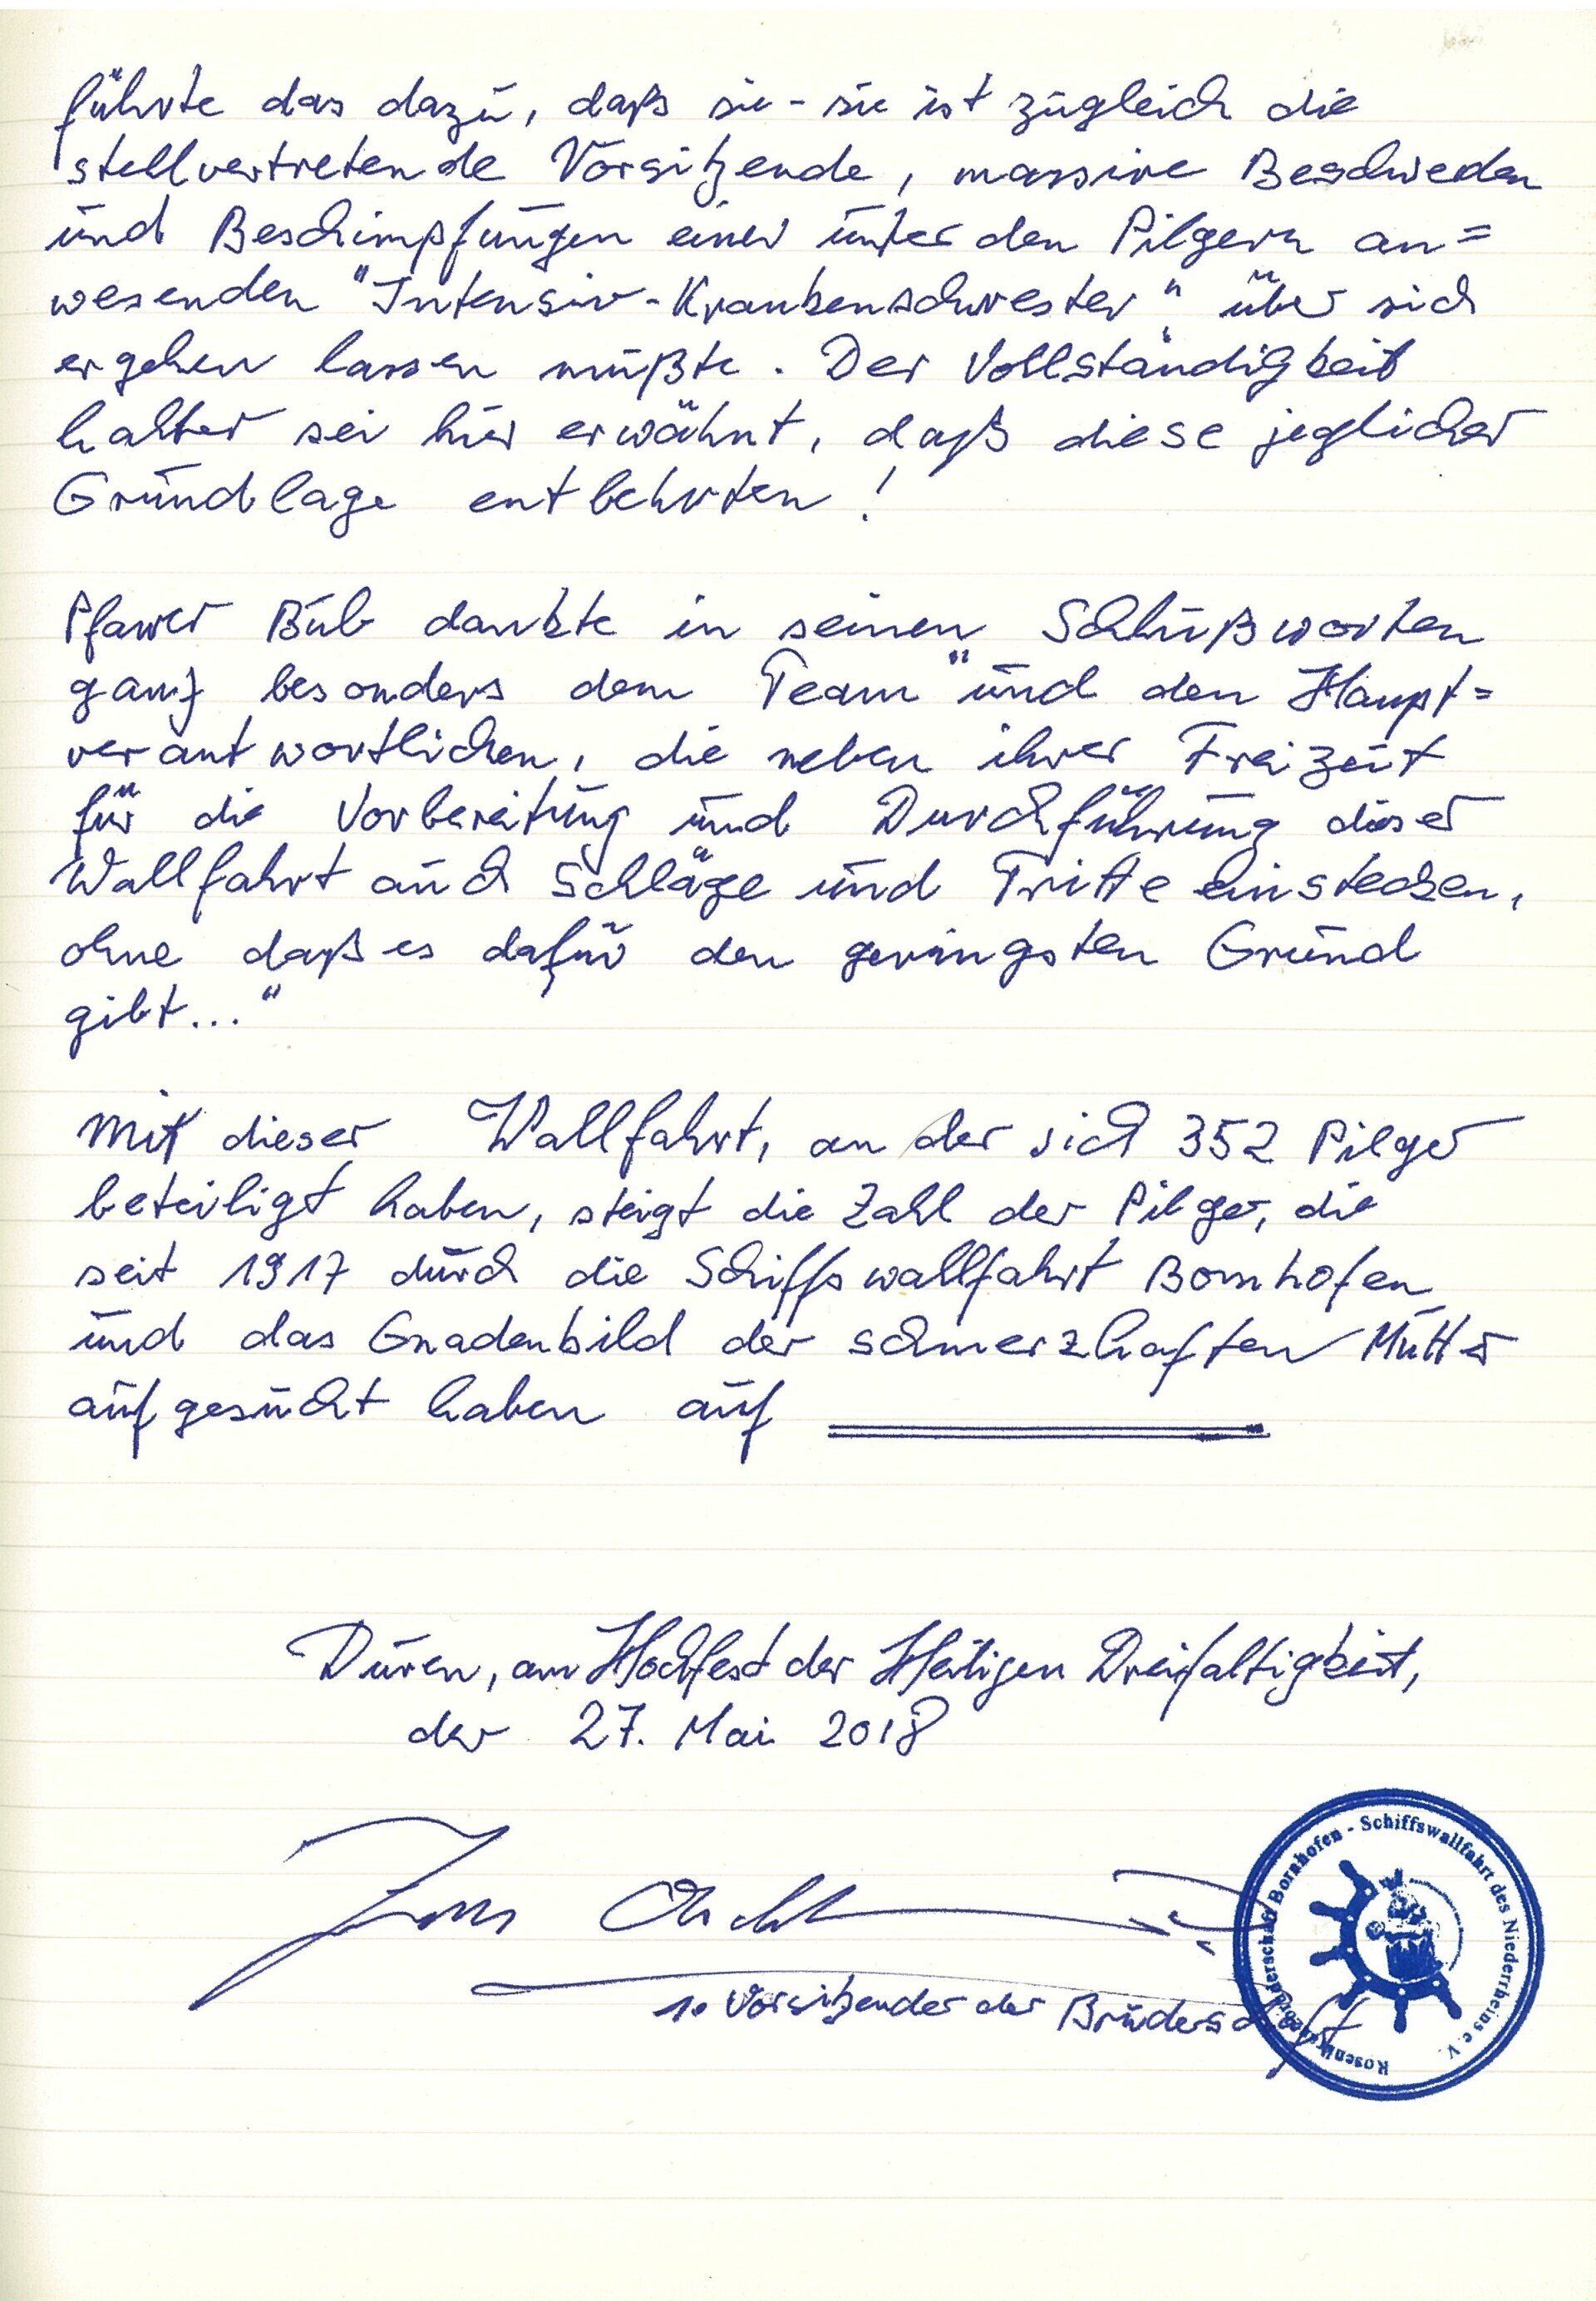 führte das dazu, daß sie - sie ist zugleich die
stellvertretende Vorsitzende, massive Beschwerden
und Beschimpfungen einer unter den Pilgern an=
wesenden "Intensiv-Krankenschwester" über sich
ergehen lassen mußte. Der Vollständigkeit
halber sei hier erwähnt, daß diese jeglicher
Grundlage entbehrten!
Pfarrer Bub dankte in seinen Schlußworten
ganz besonders dem "Team und den Haupt=
verantwortlichen, die neben ihrer Freizeit
für die Vorbereitung und Durchführung dieser
Wallfahrt auch Schläge und Tritte einstecken,
ohne daß es dafür den geringsten Grund
gibt..."
Mit dieser Wallfahrt, an der sich 352 Pilger
beteiligt haben, steigt die Zahl der Pilger, die
seit 1917 durch die Schiffswallfahrt Bornhofen
und das Gnadenbild der schmerzhaften Mutter
aufgesucht haben auf
Düren, am Hochfest der Heiligen Dreifaltigkeit,
der 27. Mai 2018
1. Vorsitzender der Bruderschaft
Rosenkranzbruderschaft Bornhofen - Schiffswallfahrt des Niederrheins e.V.